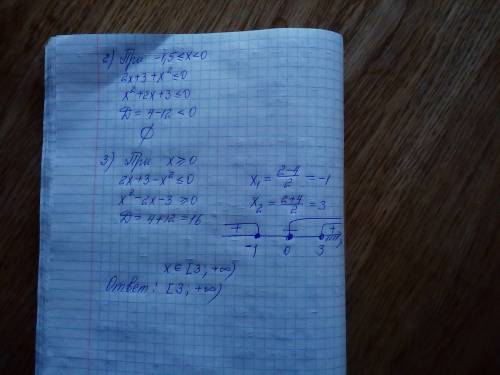 2) При -1,5≤x<0
2x+3+x²≤0
x²+2x+3≤0
D=4-12<0
∅
3) При x≥0
2x+3-x²≤0
x²-2x-3≥0
D=4+12=16
x₁=(2-4)/2=-1
x₂=(2+4)/2=3
+ +
-1 0 3
x∈[3;+∞)
Ответ: [3;+∞)